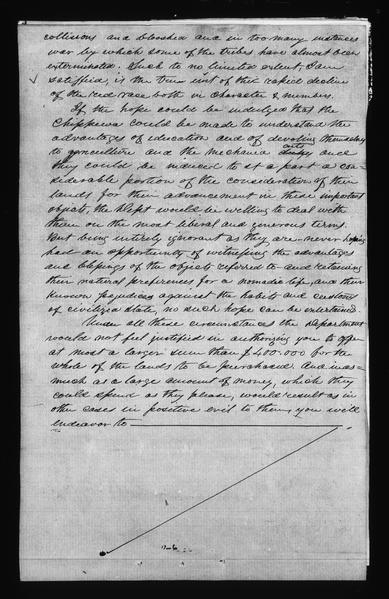 collisions and bloodshed and in too many instances
war by which some of the tribes have almost been
exterminated. Such to no limited extent, I am
satisfied, is the true of their rapid decline
of the red race both in character & numbers.
If the hope could be indulged that the
Chippewa could be made to understand the
advantages of education and of devoting themselves
to agriculture and the mechanic arts and
they could be induced to set apart a con-
siderable portion of the consideration of their
lands for their advancement in these important
objects, the Dept would be willing to deal with
them on the most liberal and generous terms.
But being entirely ignorant as they are never having
had an opportunity of witnessing the advantages
and blessings of the objects referred to and retaining
their natural preferences for a nomadic life and their
known prejudices against the habits and customs
of civilized state, no such hope can be entertained.
Under all these circumstances the Department
would not feel justified in authorizing you to offer
at most a larger sum than $400.000 for the
whole of the lands to be purchased. And inas-
much as a large amount of money, which they
could spend as they please, would result as in
other cases in positive evil to them, you will
endeavor to